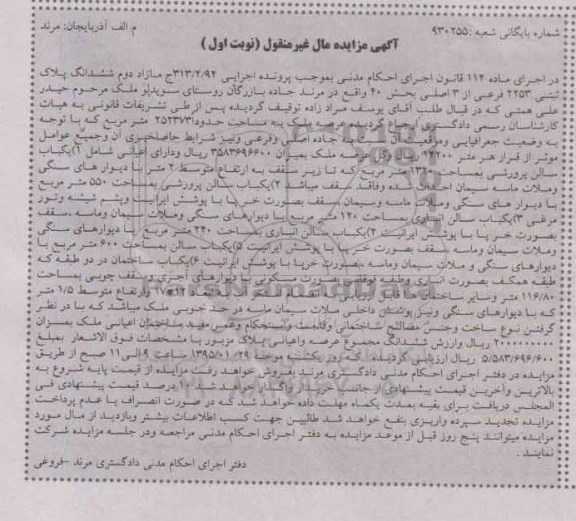 شماره بایگانی شعبه: ۹۳۰۲۵۵
م الف آذربایجان: مرند
آگهی مزایده مال غیرمنقول (نوبت اول)
در اجرای ماده ۱۱۴ قانون اجرای احکام مدنی بموجب پرونده اجرایی ۳۱۳/۲/۹۴ج مازاد دوم ششدانگ پلاک
ثبتی ۲۲۵۳ فرعی از ۳ اصلی بخش ۴۰ واقع در مرند جاده بازرگان روستای سویدلر ملک مرحوم حیدر
علی همتی که در قبال طلب آقای یوسف مراد زاده توقیف گردیده پس از طی تشریفات قانونی به هیات
کارشناسان رسمی دادگستری ارجاع گردیده عرصه ملک به مساحت حدودا ۲۵۲۳۷۳ متر مربع که با توجه
به وضعیت جغرافیایی وموقعیت آن نسبت به جاده اصلی وفرعی ونیز شرایط حاصلخیزی آن وجمیع عوامل
موثر از قرار هر متر ریال عرصه ملک بمیزان ۳۵۸۳۶۹۶۶۰۰ ریال ودارای اعیانی شامل ۱)یکباب
سالن پرورشی بمساحت متر مربع که تا زیر سقف به ارتفاع متوسط ۲ متر با دیوار های سنگی
وملات ماسه سیمان احداث شده وفاقد سقف میباشد ۲)یکباب سالن پرورشی بمساحت ۵۵۰ متر مربع
با دیوار های سنگی وملات ماسه وسیمان سقف بصورت خر پا با پوشش ایرانیت وپشم شیشه وتور
مرغی ۳)یکباب سالن انباری بمساحت ۱۲۰ متر مربع با دیوارهای سنگی وملات سیمان وماسه سقف
بصورت خر پا با پوشش ایرانیت ۴)یکباب سالن انباری بمساحت ۲۴۰ متر مربع با دیوارهای سنگی
وملات سیمان وماسه سقف بصورت خر پا با پوشش ایرانیت ۵)یکباب سالن بمساحت ۶۰۰ متر مربع با
دیوارهای سنگی و ملات سیمان وماسه بصورت خرپا با پوشش ایرانیت ۶)یکباب ساختمان در دو طبقه که
طبقه همکف بصورت انباری وطبقه فوقانی بصورت مسکونی با دیوارهای آجری وسقف چوبی بمساحت
۱۱۶/۸۰ متر وسایر ساختمانهای فاقد ارزیابی وارتفاع متوسط ۱/۵ متر
که با دیوارهای سنگی ونیز پوشش داخلی ملات سیمان ماسه در حد جنوبی ملک میباشد که با در نظر
گرفتن نوع ساخت وجنس مصالح ساختمانی وقدمت واستحکام وعمر مفید ساختمان اعیانی ملک بمیزان
۲۰۰۰۰۰۰۰۰۰ ریال وارزش ششدانگ مجموع عرصه واعیانی پلاک مزبور با مشخصات فوق الاشعار بمبلغ
۵/۵۸۳/۶۹۶/۶۰۰ ریال ارزیابی گردیده است روز یکشنبه مورخه ۱۳۹۵/۰۱/۲۹ ساعت ۹ الی ۱۱ صبح از طریق
مزایده در دفتر اجرای احکام مدنی دادگستری مرند بفروش خواهد رفت مزایده از قیمت پایه شروع به
بالاترین وآخرین قیمت پیشنهادی از جانب خریدار واگذار خواهد شد ۱۰ درصد قیمت پیشنهادی فی
المجلس دریافت برای بقیه بمدت یکماه مهلت داده خواهد شد که در صورت انصراف یا عدم پرداخت
مزایده تجدید سپرده واریزی بنفع خواهد شد طالبین جهت کسب اطلاعات بیشتر وبازدید از مال مورد
مزایده میتوانند پنج روز قبل از موعد مزایده به دفتر اجرای احکام مدنی مراجعه ودر جلسه مزایده شرکت
نمایند.
دفتر اجرای احکام مدنی دادگستری مرند -فروغی